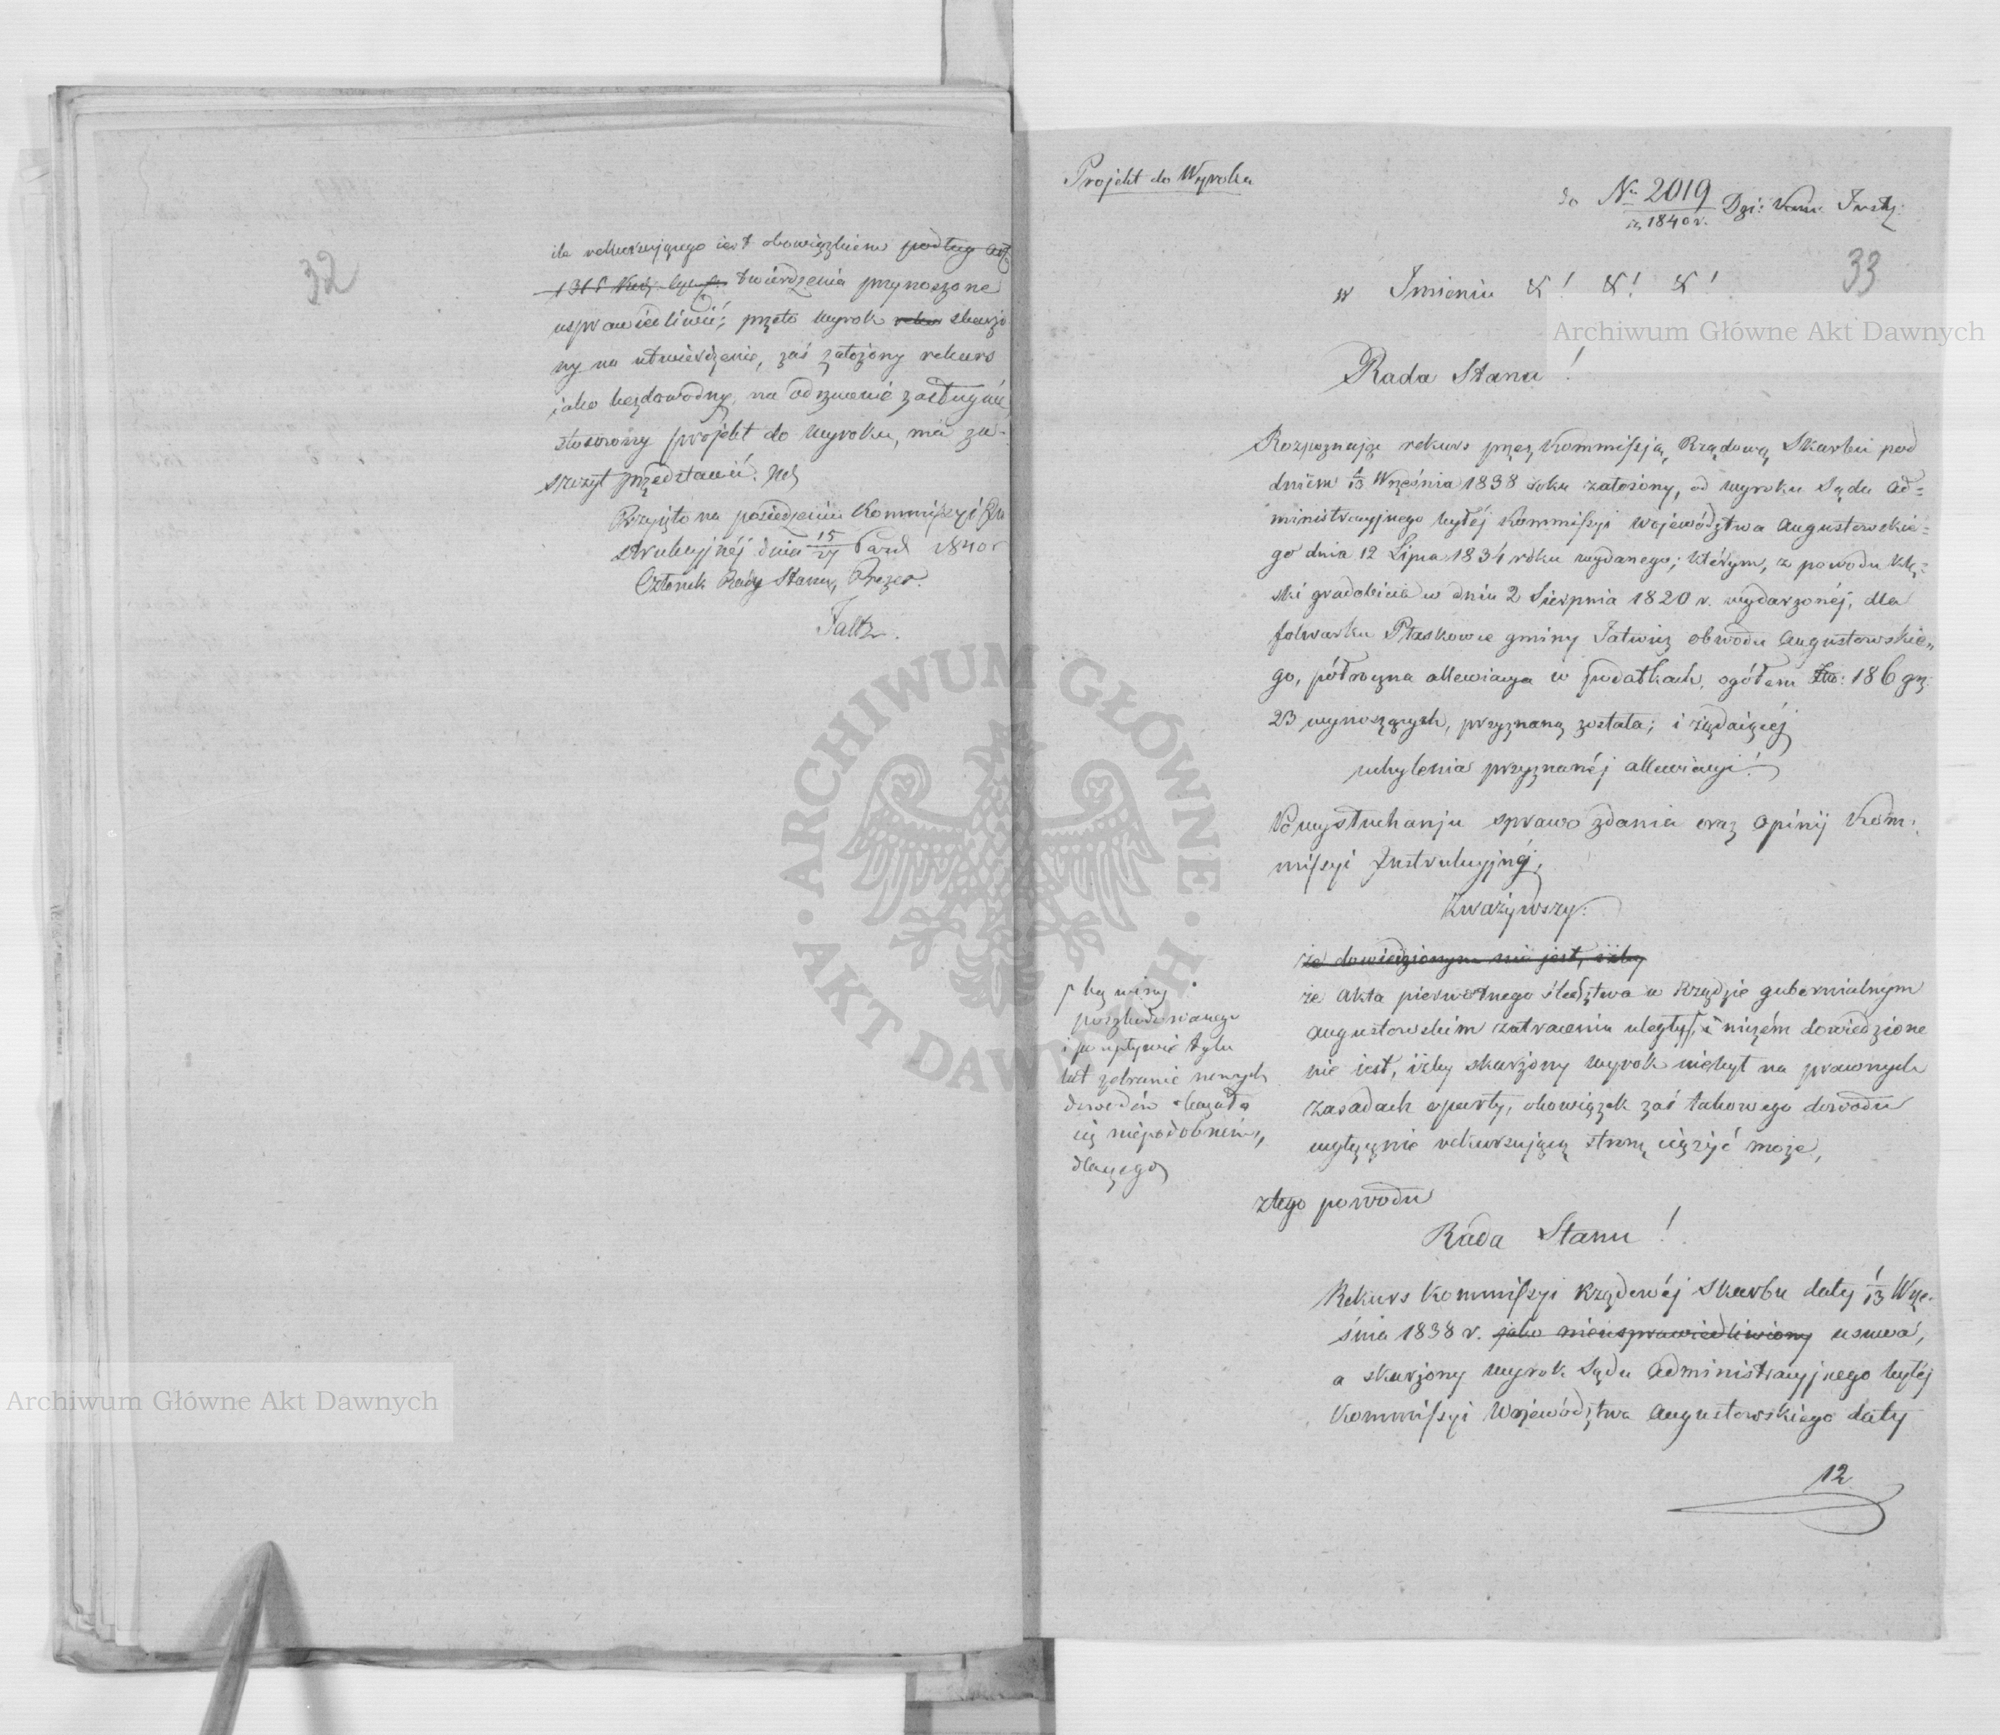 32
ile rekurującego iest obowiązkiem podług art
1315 Kod. Cyw. twierdzenia przynoszone
usprawiedliwić; przeto wyrok skarżo
ny na utwierdzenie, zaś założony rekurs
jako bezdowodny, na odrzucenie zasługuie
stosowny projekt do wyroku, ma za-
szczyt przedstawić.
Przyjęto na posiedzeniu Kommissyi In
strukcyjnéj dnia 15/27 Paźd 1840 r
Członek Rady Stanu, Prezes.
Faltz.
Projekt do Wyroku
do Nr 2019 z 1840 r. Dzi: Kom: Insty:
33
w Imieniu &! &! &!
Rada Stanu!
Rozpoznając rekurs przez Kommissją Rządową Skarbu pod
dniem 1/13 Września 1838 roku założony, od wyroku Sądu Ad-
ministracyjnego byłéj Kommissyi Województwa Augustowskie-
go dnia 12 Lipca 1834 roku wydanego; którym, z powodu klę-
ski gradobicia w dniu 2 Sierpnia 1820 r. wydarzonéj, dla
folwarku Ptaskowce gminy Jatwież obwodu Augustowskie-
go, półroczna allewiacya w podatkach, ogółem Złło: 186 gr.
23 wynoszących, przyznaną została; i żądaiącéj
uchylenia przyznanéj allewiacyi!
Po wysłuchaniu sprawozdania oraz opinij Kom-
missyi Instrukcyjnéj,
Zważywszy:
że dowiedzionym nie jest, iżby
że akta pierwotnego śledztwa w Rządzie gubernialnym
Augustowskim zatraceniu uległy, i niczém dowiedzione
nie iest, iżby skarżony wyrok niebył na prawnych
zasadach oparty, obowiązek zaś takowego dowodu
wyłącznie rekursującą stronę ciążyć może,
bez winy
poszkodowanego
i po upływie tylu
lat zebranie nowych
dowodów okazało
się niepodobném,
dlaczego
z tego powodu
Rada Stanu!
Rekurs Kommissyi Rządowéj Skarbu daty 1/13 Wrze-
śnia 1838 r. jako nieusprawiedliwiony usuwa,
a skarżony wyrok Sądu Administracyjnego byłéj
Kommissyi Województwa Augustowskiego daty
12
ARCHIWUM GŁÓWNE AKT DAWNYCH
Archiwum Główne Akt Dawnych
Archiwum Główne Akt Dawnych